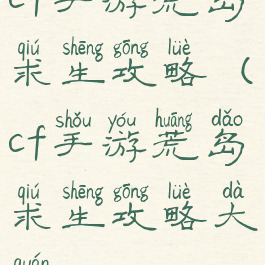 cf手游荒岛
qiú shēng gōng lüè
求生攻略（
shǒu yóu huāng dǎo
cf手游荒岛
qiú shēng gōng lüè dà
求生攻略大
quán